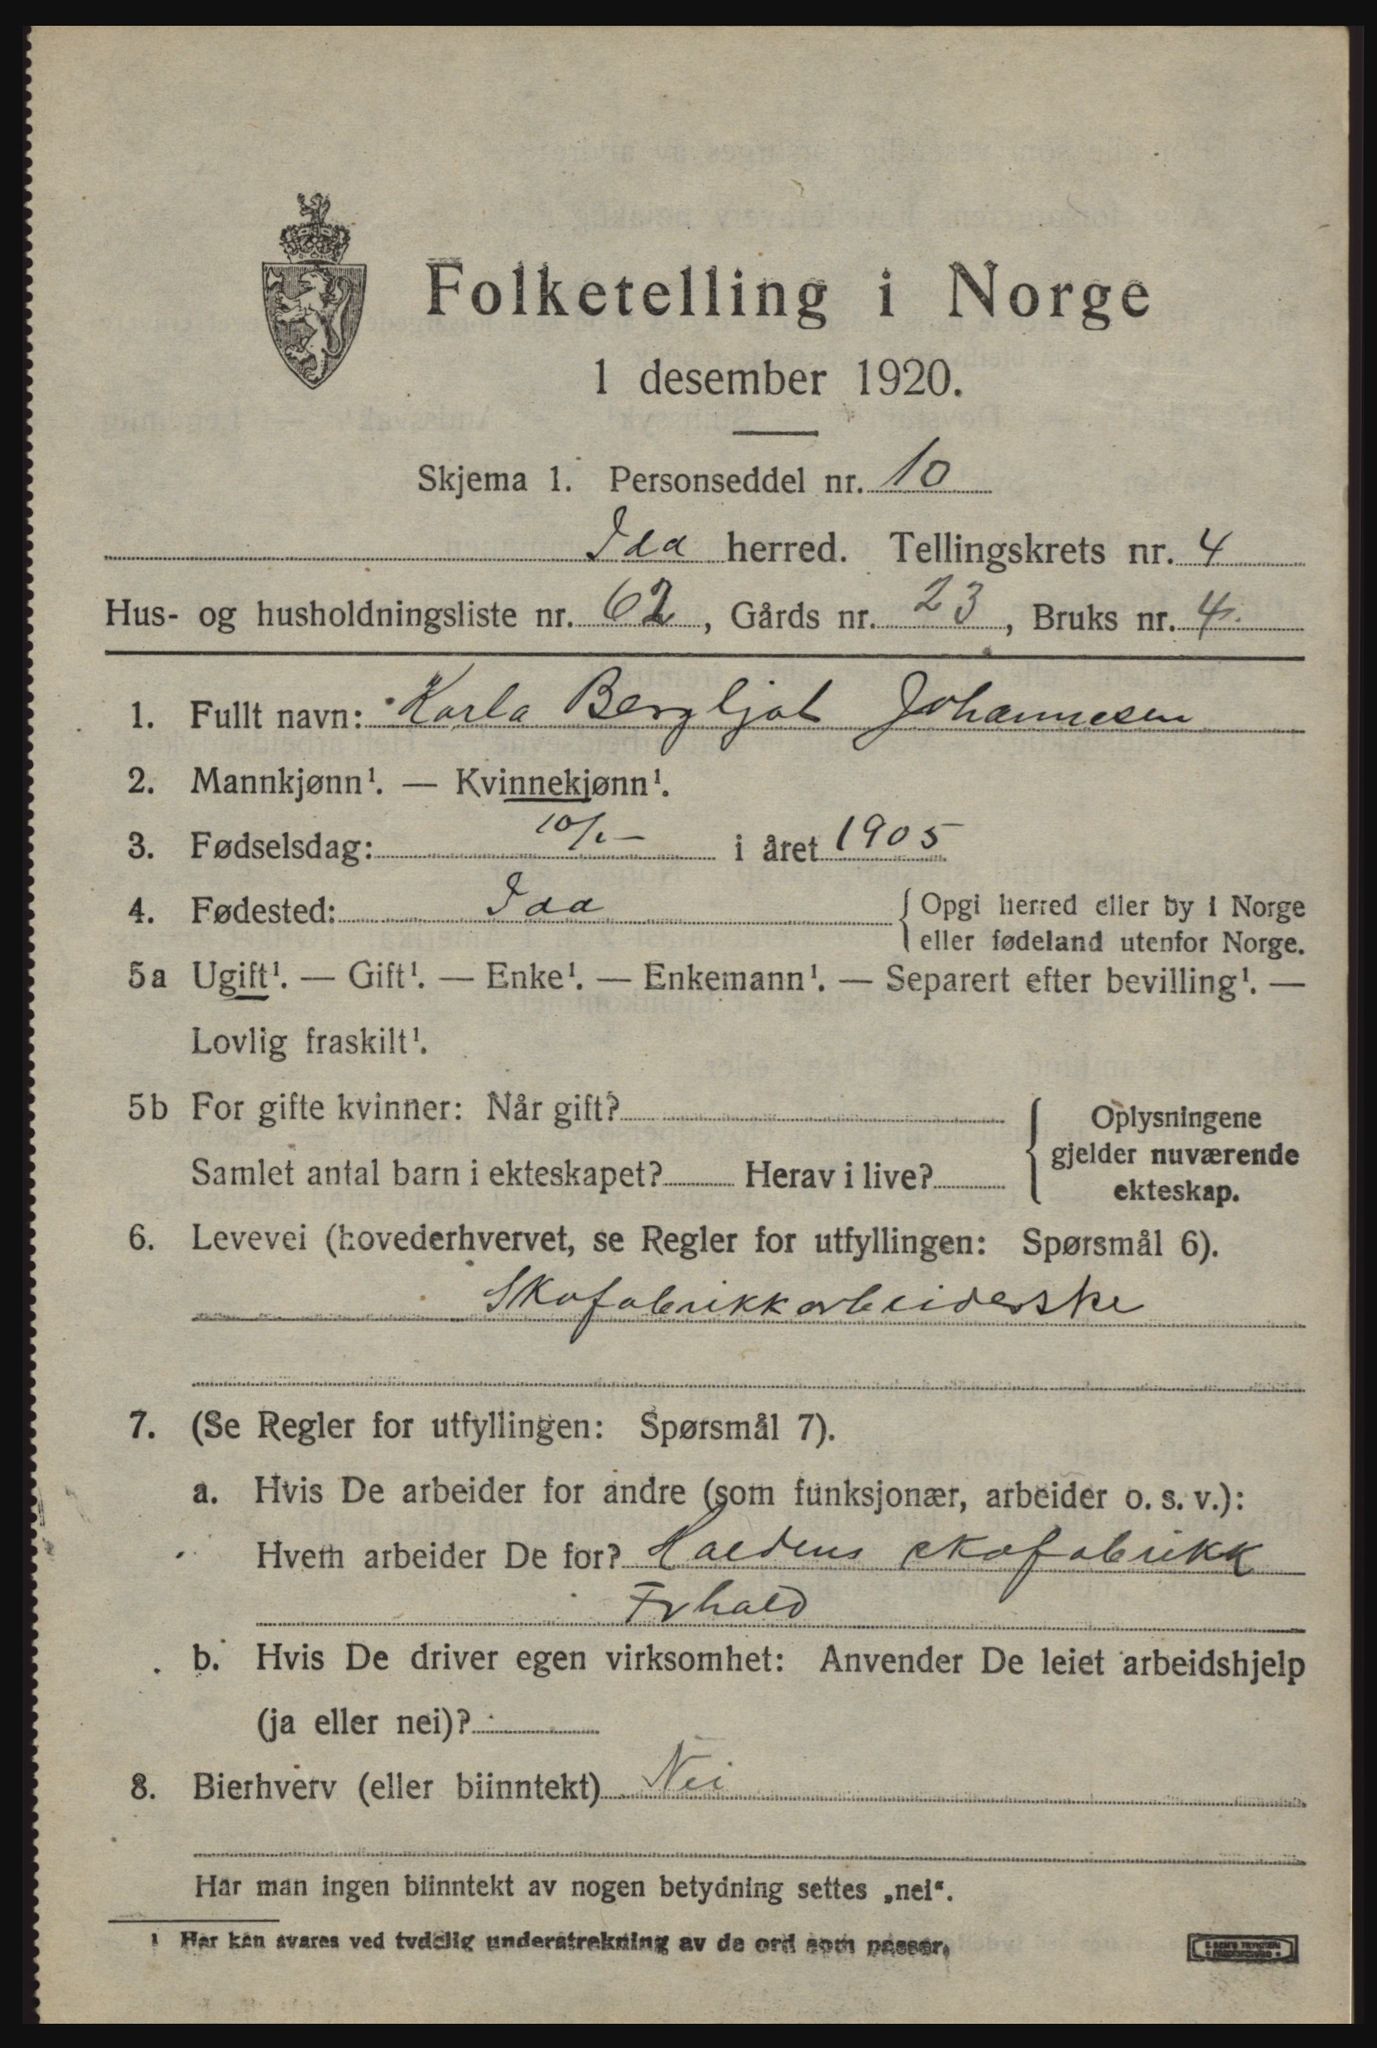 Folketelling i Norge
1 desember 1920.
Skjema 1. Personseddel nr. 10
Idd herred. Tellingskrets nr. 4
Hus- og husholdningsliste nr. 62, Gårds nr. 23, Bruks nr. 4.
1. Fullt navn: Karla Bergljot Johannesen
2. Mannkjønn¹. — Kvinnekjønn¹.
3. Fødselsdag: 10/1— i året 1905
4. Fødested: Idd { Opgi herred eller by i Norge
eller fødeland utenfor Norge.
5a Ugift¹. — Gift¹. — Enke¹. — Enkemann¹. — Separert efter bevilling¹. —
Lovlig fraskilt¹.
5b For gifte kvinner: Når gift? { Oplysningene
gjelder nuværende
Samlet antal barn i ekteskapet? Herav i live?
ekteskap.
6. Levevei (hovederhvervet, se Regler for utfyllingen: Spørsmål 6).
Skofabrikkarbeiderske
7. (Se Regler for utfyllingen: Spørsmål 7).
a. Hvis De arbeider for andre (som funksjonær, arbeider o. s. v.):
Hvem arbeider De for? Haldens skofabrikk
Frhald
b. Hvis De driver egen virksomhet: Anvender De leiet arbeidshjelp
(ja eller nei)?
8. Bierhverv (eller biinntekt) Nei
Har man ingen biinntekt av nogen betydning settes „nei“.
¹ Her kan svares ved tydelig understrekning av de ord som passer.